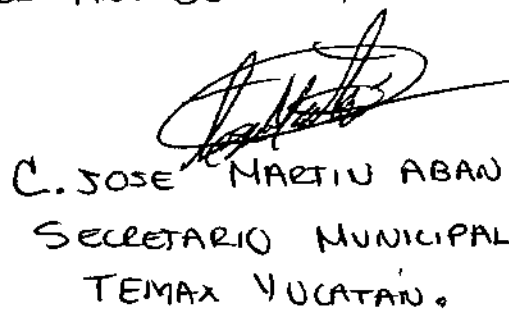 C. JOSE MARTIN ABAN
SECRETARIO MUNICIPAL
TEMAX YUCATÁN.